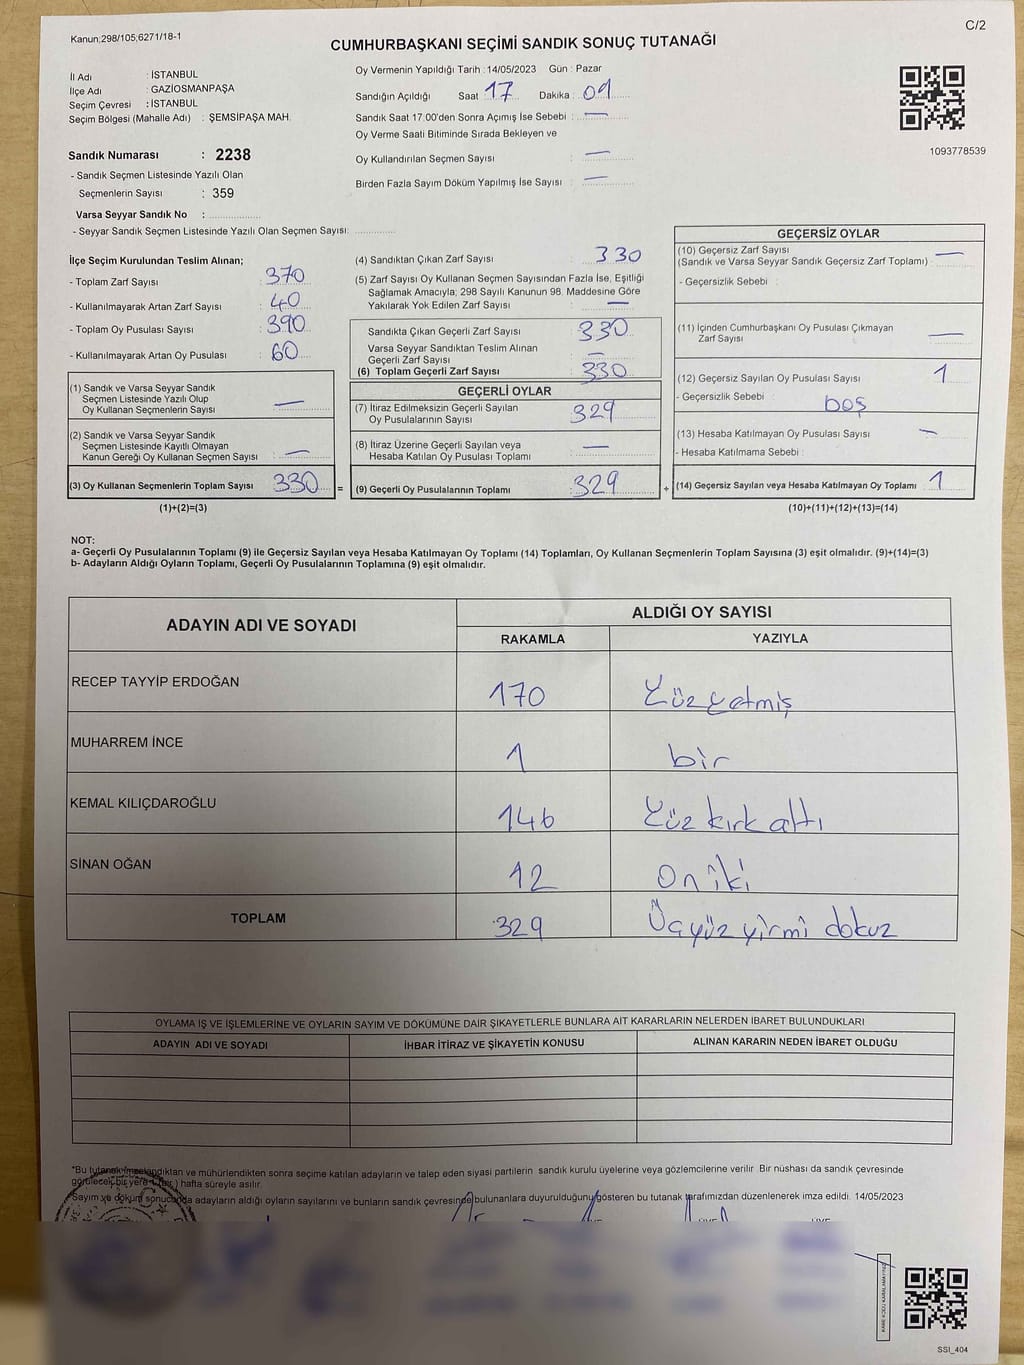 C/2
Kanun;298/105;6271/18-1
CUMHURBAŞKANI SEÇİMİ SANDIK SONUÇ TUTANAĞI
İl Adı : İSTANBUL
İlçe Adı : GAZİOSMANPAŞA
Seçim Çevresi : İSTANBUL
Seçim Bölgesi (Mahalle Adı) : ŞEMSİPAŞA MAH.
Sandık Numarası : 2238
- Sandık Seçmen Listesinde Yazılı Olan
Seçmenlerin Sayısı : 359
Varsa Seyyar Sandık No :
- Seyyar Sandık Seçmen Listesinde Yazılı Olan Seçmen Sayısı:
Oy Vermenin Yapıldığı Tarih : 14/05/2023 Gün : Pazar
Sandığın Açıldığı Saat 17 Dakika : 09
Sandık Saat 17.00'den Sonra Açımış İse Sebebi : —
Oy Verme Saati Bitiminde Sırada Bekleyen ve
Oy Kullandırılan Seçmen Sayısı : —
Birden Fazla Sayım Döküm Yapılmış İse Sayısı : —
1093778539
İlçe Seçim Kurulundan Teslim Alınan;
- Toplam Zarf Sayısı : 370
- Kullanılmayarak Artan Zarf Sayısı : 40
- Toplam Oy Pusulası Sayısı : 390
- Kullanılmayarak Artan Oy Pusulası : 60
(1) Sandık ve Varsa Seyyar Sandık
Seçmen Listesinde Yazılı Olup
Oy Kullanan Seçmenlerin Sayısı : —
(2) Sandık ve Varsa Seyyar Sandık
Seçmen Listesinde Kayıtlı Olmayan
Kanun Gereği Oy Kullanan Seçmen Sayısı : —
(3) Oy Kullanan Seçmenlerin Toplam Sayısı 330 =
(1)+(2)=(3)
(4) Sandıktan Çıkan Zarf Sayısı : 330
(5) Zarf Sayısı Oy Kullanan Seçmen Sayısından Fazla İse, Eşitliği
Sağlamak Amacıyla; 298 Sayılı Kanunun 98. Maddesine Göre
Yakılarak Yok Edilen Zarf Sayısı : —
Sandıkta Çıkan Geçerli Zarf Sayısı : 330
Varsa Seyyar Sandıktan Teslim Alınan
Geçerli Zarf Sayısı : —
(6) Toplam Geçerli Zarf Sayısı : 330
GEÇERLİ OYLAR
(7) İtiraz Edilmeksizin Geçerli Sayılan
Oy Pusulalarının Sayısı : 329
(8) İtiraz Üzerine Geçerli Sayılan veya
Hesaba Katılan Oy Pusulası Toplamı : —
(9) Geçerli Oy Pusulalarının Toplamı : 329 +
GEÇERSİZ OYLAR
(10) Geçersiz Zarf Sayısı
(Sandık ve Varsa Seyyar Sandık Geçersiz Zarf Toplamı) : —
- Geçersizlik Sebebi :
(11) İçinden Cumhurbaşkanı Oy Pusulası Çıkmayan
Zarf Sayısı : —
(12) Geçersiz Sayılan Oy Pusulası Sayısı : 1
- Geçersizlik Sebebi : boş
(13) Hesaba Katılmayan Oy Pusulası Sayısı : —
- Hesaba Katılmama Sebebi :
(14) Geçersiz Sayılan veya Hesaba Katılmayan Oy Toplamı : 1
(10)+(11)+(12)+(13)=(14)
NOT:
a- Geçerli Oy Pusulalarının Toplamı (9) ile Geçersiz Sayılan veya Hesaba Katılmayan Oy Toplamı (14) Toplamları, Oy Kullanan Seçmenlerin Toplam Sayısına (3) eşit olmalıdır. (9)+(14)=(3)
b- Adayların Aldığı Oyların Toplamı, Geçerli Oy Pusulalarının Toplamına (9) eşit olmalıdır.
ADAYIN ADI VE SOYADI ALDIĞI OY SAYISI
RAKAMLA YAZIYLA
RECEP TAYYİP ERDOĞAN 170 Yüzyetmiş
MUHARREM İNCE 1 bir
KEMAL KILIÇDAROĞLU 146 Yüz kırk altı
SİNAN OĞAN 12 On iki
TOPLAM 329 Üçyüz yirmi dokuz
OYLAMA İŞ VE İŞLEMLERİNE VE OYLARIN SAYIM VE DÖKÜMÜNE DAİR ŞİKAYETLERLE BUNLARA AİT KARARLARIN NELERDEN İBARET BULUNDUKLARI
ADAYIN ADI VE SOYADI İHBAR İTİRAZ VE ŞİKAYETİN KONUSU ALINAN KARARIN NEDEN İBARET OLDUĞU
*Bu tutanak imzalandıktan ve mühürlendikten sonra seçime katılan adayların ve talep eden siyasi partilerin sandık kurulu üyelerine veya gözlemcilerine verilir. Bir nüshası da sandık çevresinde
görülecek bir yere 1 (bir) hafta süreyle asılır.
Sayım ve döküm sonucunda adayların aldığı oyların sayılarını ve bunların sandık çevresinde bulunanlara duyurulduğunu gösteren bu tutanak tarafımızdan düzenlenerek imza edildi. 14/05/2023
SSI_404